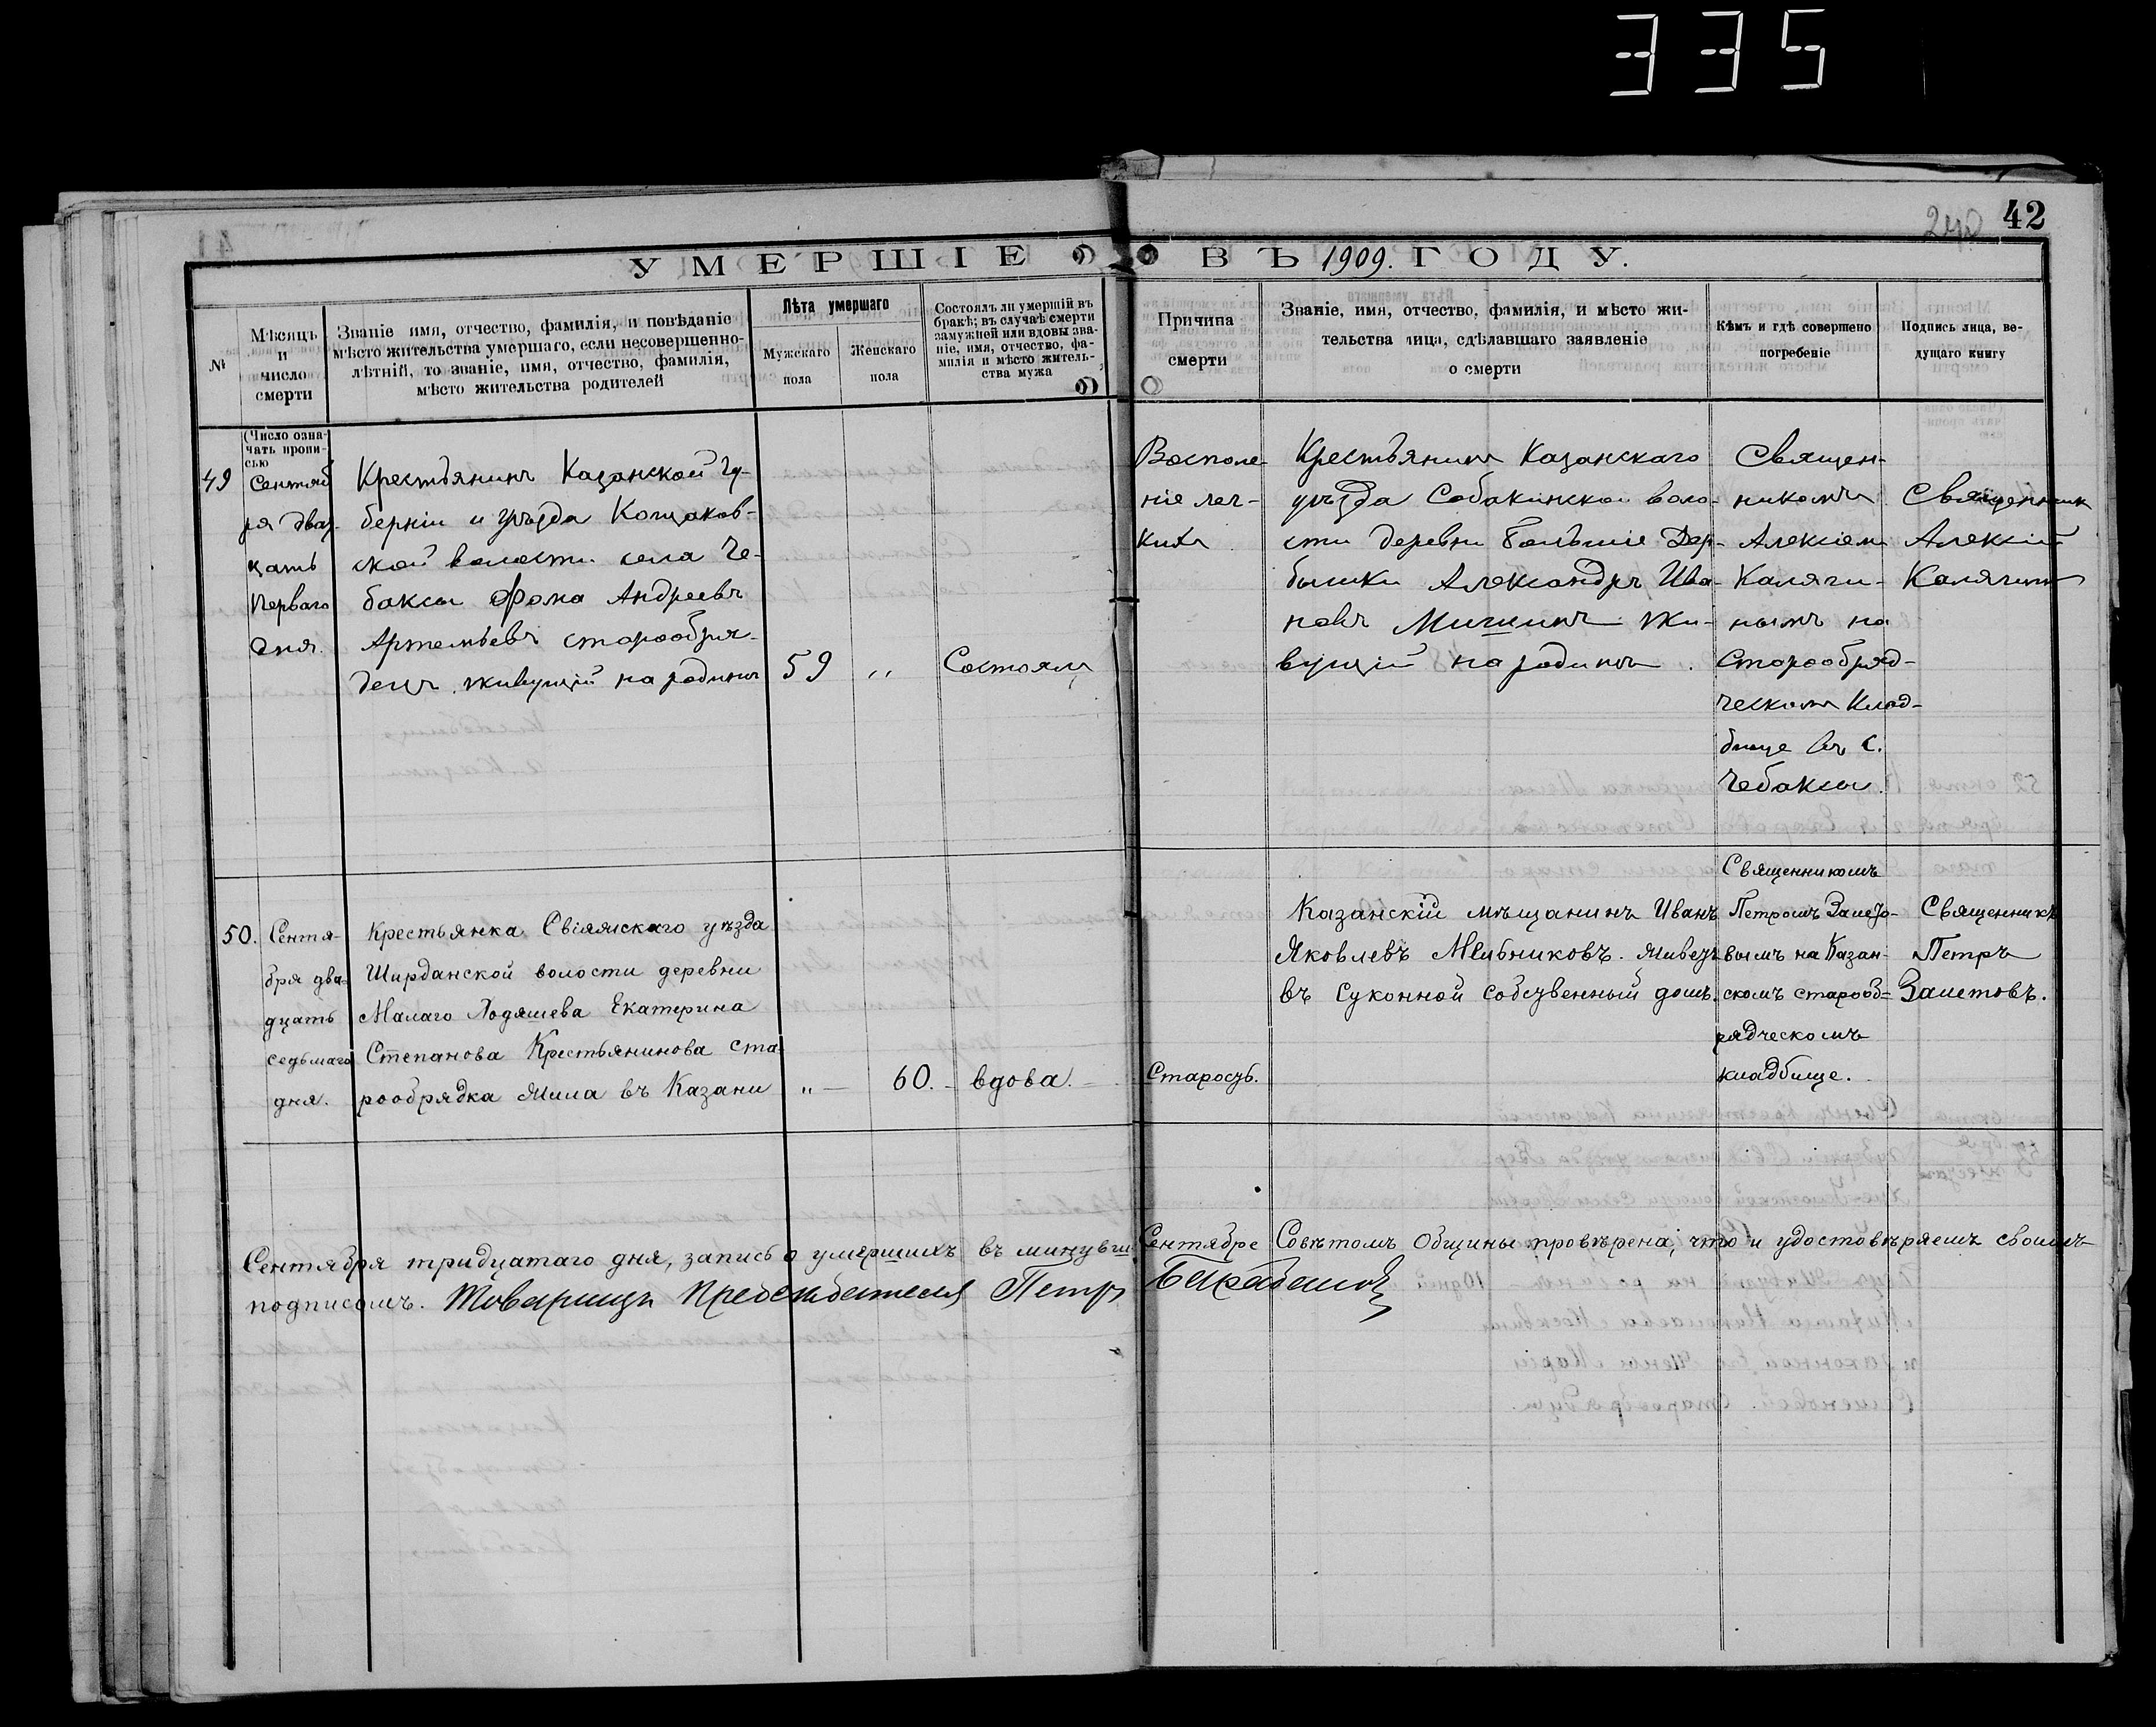 335
42
УМЕРШІЕ ВЪ 1909. ГОДУ.
№
Мѣсяцъ
и
число
смерти
Званіе имя, отчество, фамилія, и повѣданіе
мѣсто жительства умершаго, если несовершенно-
лѣтній, то званіе, имя, отчество, фамилія,
мѣсто жительства родителей
Лѣта умершаго
Мужскаго
пола
Женскаго
пола
Состоялъ ли умершій въ
бракѣ; въ случаѣ смерти
замужней или вдовы зва-
ніе, имя, отчество, фа-
милія и мѣсто житель-
ства мужа
Причина
смерти
Званіе, имя, отчество, фамилія, и мѣсто жи-
тельства лица, сдѣлавшаго заявленіе
о смерти
Кѣмъ и гдѣ совершено
погребеніе
Подпись лица, ве-
дущаго книгу
(Число озна-
чать пропи-
сью
49
Сентяб
ря двад-
цать
перваго
дня.
Крестьянинъ Казанской гу-
берніи и уѣзда Кощаков-
ской волости села Че-
баксы Фома Андреевъ
Артемьевъ старообря-
децъ живущій на родинѣ
59
"
Состоялъ
Восполе-
ніе лег-
кихъ
Крестьянинъ Казанскаго
уѣзда Собакинской воло-
сти деревни Большіе Дер-
бышки Александръ Ива-
новъ Мишинъ жи-
вущій на родинѣ.
Священ-
никомъ
Алексіем
Каляги-
нымъ на
Старообряд-
ческомъ клад-
бище въ с.
Чебаксы
Священник
Алексій
Калягинъ
50.
Сентя-
бря два-
дцать
седьмаго
дня.
Крестьянка Свіяжскаго уѣзда
Ширданской волости деревни
Малаго Ходяшева Екатерина
Степанова Крестьянинова ста-
рообрядка жила въ Казани
"
60.
вдова.
Старость.
Казанскій мѣщанинъ Иванъ
Яковлевъ Мельниковъ. живетъ
въ Суконной собственный домъ.
Священникомъ
Петромъ Замето-
вымъ на Казан-
скомъ старооб-
рядческомъ
кладбище.
Священникъ
Петръ
Заметовъ.
Сентября тридцатаго дня, запись о умершихъ въ минувш Сентябре Совѣтомъ Общины провѣрена, что и удостовѣряемъ своимъ
подписомъ. Товарищъ Председателя Петр